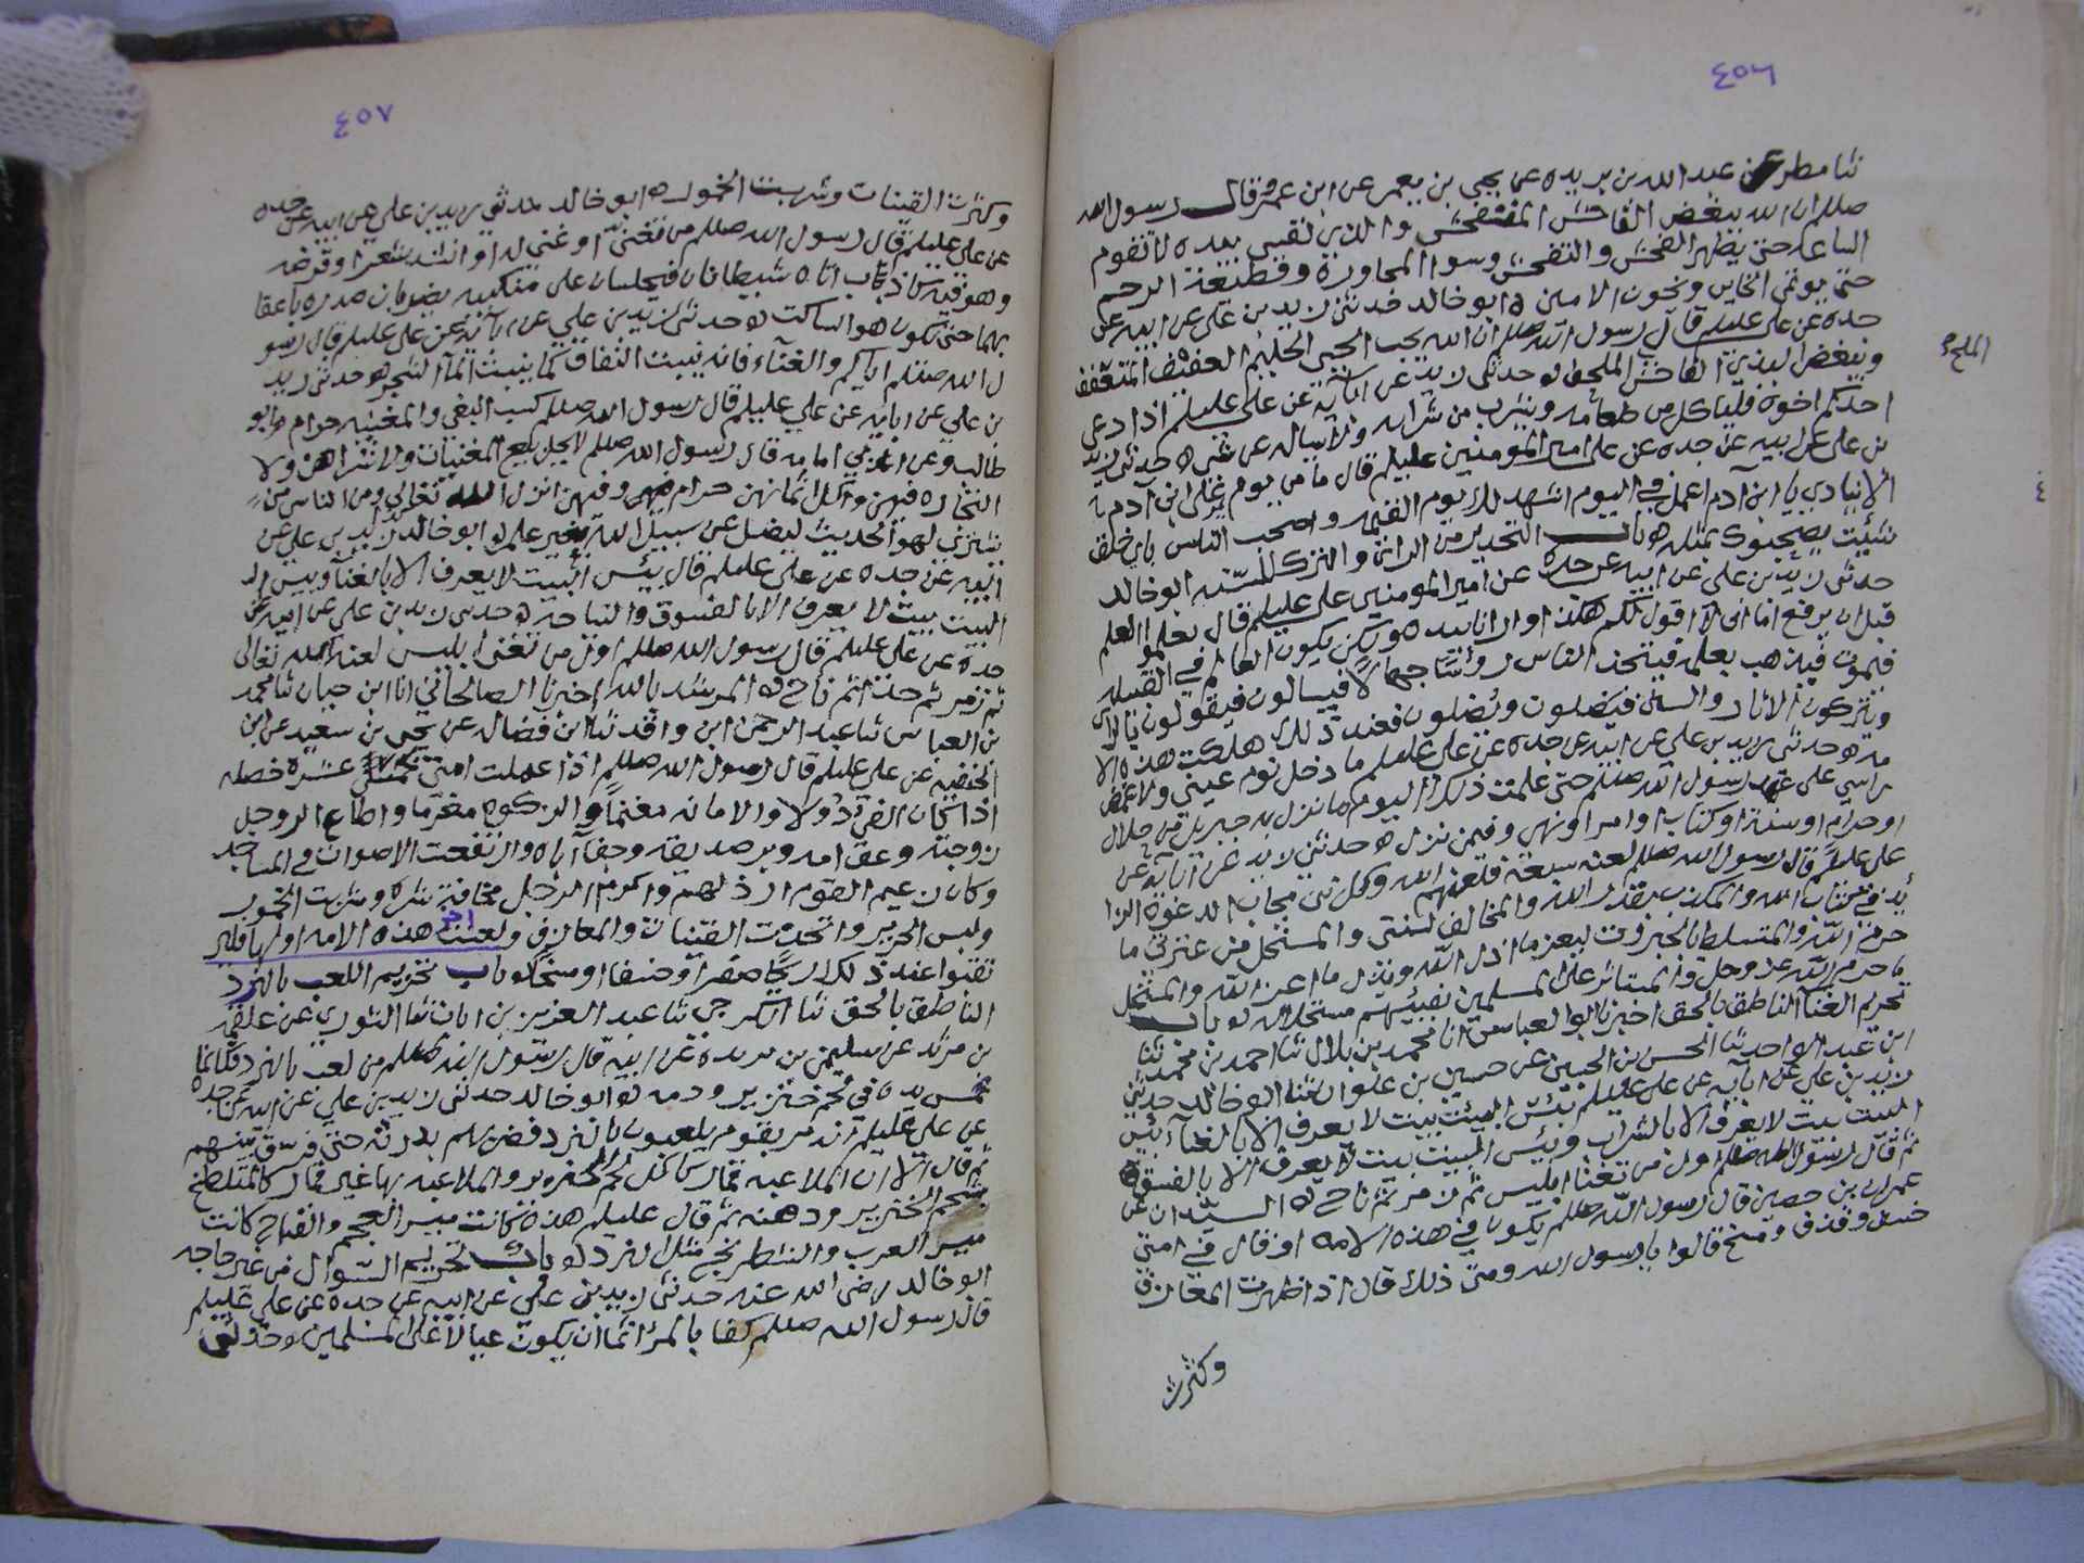 ٤٥٦
ثنا مطر عن عبد الله بن بريده عن يحيى بن يعمر عن ابن عمر قال رسول الله
صللم ان الله يبغض الفاحش المتفحش والذي نفسي بيده لا تقوم
الساعة حتى يظهر الفحش والتفحش وسوا المجاورة وقطيعة الرحم
حتى يوتمن الخاين ويخون الامين ه ابو خالد حدثني زيد بن علي عن ابيه عن
جده عن علي عليلم قال رسول الله صللم ان الله يحب الحيي الحليم العفيف المتعفف
ويبغض البذي الفاحش الملحف ه حدثني زيد عن ابائه عن علي عليلم اذا دعى
الملح
احدكم اخوه فلياكل من طعامه ويشرب من شرابه ولا يسال عن شي ه حدثني زيد
بن علي عن ابيه عن جده عن علي امير المومنين عليلم قال ما من يوم يمر على ابن آدم
الا ينادي يا ابن آدم اعمل في اليوم اشهد لك يوم القيمه واصحب الناس باي خلق
شئت يصحبوك بمثله ه باب التحذير من الراي والترك للسنه ابو خالد
حدثني زيد بن علي عن ابيه عن جده عن امير المومنين علي عليلم قال تعلموا العلم
قبل ان يرفع اما اني لا اقول لكم هكذا وارانا بيده ولكن يكون العالم في القبيله
فيموت فيذهب بعلمه فيتخذ الناس روسا جهالا فيسالون فيقولون بالراي
ويتركون الاثار والسنن فيضلون ويضلون فعند ذلك هلكت هذه الا
مه ه حدثني زيد بن علي عن ابيه عن جده عن علي عليلم ما دخل نوم عيني ولا غمض
راسي على عهد رسول الله صللم حتى علمت ذلك اليوم ما نزل به جبريل من حلال
او حرام او سنة او كتاب او امر او نهي وفيمن نزل ه حدثني زيد عن آبائه عن
علي عليلم قال رسول الله صللم لعنه سبعة فلعنهم الله وكل نبي مجاب الدعوة الزا
يد في كتاب الله والمكذب بقدر الله والمخالف لسنتي والمستحل من عترتي ما
حرم الله والمتسلط بالجبروت ليعز ما اذل الله ويذل ما اعز الله والمستحل
ما حرم الله عز وجل والمستاثر على المسلمين بفيئهم مستحلا له ه باب
تحريم الغنا الناطق بالحق اخبرنا ابو العباس انا محمد بن بلال ثنا احمد بن محمد ثنا
ابن عبد الواحد ثنا الحسن بن الحسين عن حسين بن علوان ثنا ابو خالد حدثني
زيد بن علي عن ابايه عن علي عليلم بئس البيت بيت لا يعرف الا بالغنا وبئس
البيت بيت لا يعرف الا بالشراب وبئس البيت بيت لا يعرف الا بالفسق
ثم قال رسول الله صللم اول من تغنا ابليس ثم زمر ثم ناح ه السيدان عن
عمران بن حصين قال رسول الله صللم يكون في هذه الامه او قال في امتي
خسف وقذف ومسخ قالوا يا رسول الله ومتى ذلك قال اذا ظهرت المعازف
وكثرت
٤٥٧
وكثرت القينات وشربت الخمور ه ابو خالد حدثني زيد بن علي عن ابيه عن جده
عن علي عليلم قال رسول الله صللم من تغنى او غني له او انشد شعرا وقرضه
وهو فيه كاذب اتاه شيطانان فيجلسان على منكبيه يضربان صدره باعقا
بهما حتى يكون هو الساكت ه حدثني زيد بن علي عن ابآئه عن علي عليلم قال رسو
ل الله صللم اياكم والغنآء فانه ينبت النفاق كما ينبت المآ الشجر ه حدثني زيد
بن علي عن ابائه عن علي عليلم قال رسول الله صللم كسب البغي والمغنيه حرام ه ابو
طالب وعن ابي امامه قال رسول الله صللم لا يحل بيع المغنيات ولا شراهن ولا
التجاره فيهن واكل اثمانهن حرام وفيهن انزل الله تعالى ومن الناس من
يشتري لهو الحديث ليضل عن سبيل الله بغير علم ه ابو خالد زيد بن علي عن
ابيه عن جده عن علي عليلم قال بئس البيت لا يعرف الا بالغنآ وبيس ا
البيت بيت لا يعرف الا بالفسوق والنياحه ه حدثني زيد بن علي عن ابيه عن
جده عن علي عليلم قال رسول الله صللم اول من تغنى ابليس لعنه الله تعالى
ثم زمر ثم حدا ثم ناح ه المرشد بالله اخبرنا الصالحاني انا ابن حبان ثنا محمد
بن العباس ثنا عبد الرحمن ابن واقد ثنا ابن فضاله عن يحيى بن سعيد عن ابن
الحنفيه عن علي عليلم قال رسول الله صللم اذا عملت امتي خمس عشرة خصله
اذا كان الفي دولا والامانه مغنما والزكوه مغرما واطاع الرجل
زوجته وعق امه وبر صديقه وجفا آباه وارتفعت الاصوات في المساجد
وكان زعيم القوم ارذلهم واكرم الرجل مخافة شره وشربت الخمور
ولبس الحرير واتخذت القينات والمعازف ولعنت آخر هذه الامه اولها فلير
تقبوا عند ذلك ريحا حمرا او خسفا او مسخا ه باب تحريم اللعب بالنرد
الناطق بالحق ثنا ثنا عبد العزيز بن ابان ثنا الثوري عن علقمه
بن مرثد عن سليمن بن بريدة عن ابيه قال رسول الله صللم من لعب بالنرد فكانما
غمس يده في لحم خنزير ودمه ه ابو خالد حدثني زيد بن علي عن ابيه عن جده
عن علي عليلم انه مر بقوم يلعبون بالنرد فضربهم بدرته حتى فرق بينهم
ثم قال الا ان الملاعبه قمارا كاكل لحم الخنزير والملاعبه بها غير قمار كالمتلطخ
بشحم الخنزير ودهنه ثم قال عليلم هذه كانت ميسر العجم والقداح كانت
ميسر العرب والشطرنج مثل النرد ه باب تحريم السوال من غير حاجه
ابو خالد رضى الله عنه حدثني زيد بن علي عن ابيه عن جده عن علي عليلم
قال رسول الله صللم كفا بالمرء اثما ان يكون عيالا على المسلمين ه حدثني